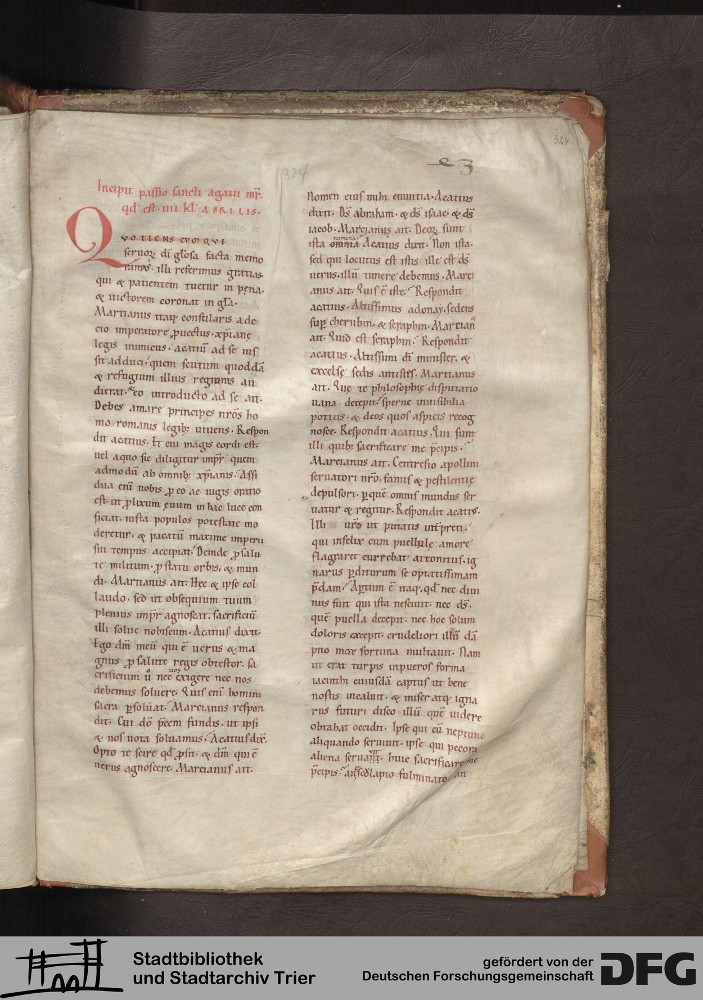 324
324
Incipit passio sancti agatii mr̄.
qd̄ est · iiii kl̄ APRILIS ·
QVOTIENS
seruoꝝ di ḡlosa facta memo
ramꝰ · illi referimus gratias
qui & patientem tuetur in pena ·
& uictorem coronat in gl̄a ·
Martianus itaqꝫ consularis a de
cio imperatore ꝓuectus · xp̄iane
legis inimicus · acatiū ad se ius
sit adduci · quem scutum quoddā
& refugium illius regionis au
dierat · eo introducto ad se ait ·
Debes amare principes nr̄os ho
mo romanis legibꝫ uiuens · Respon
dit acatius · Et cui magis cordi est ·
uel a quo sic diligitur imꝑr quem
admodū ab omnibꝫ xp̄ianis · Assi
dua eni nobis ꝓ eo ac iugis oratio
est · ut ꝓlixum euum in hac luce con
ficiat · iusta populos potestate mo
deretur · & pacatū maxime imperii
sui tempus accipiat · Deinde ꝓ salu
te militum · ꝓ statu orbis · & mun
di · Martianus ait · Hec & ipse col
laudo · sed ut obsequium tuum
plenius imꝑr agnoscat · sacrificiū
illi solue nobiscum · Acatius dixit ·
Ego dm̄ meū qui ē uerus & ma
gnus ꝓ salute regis obtestor · sa
crificium ū nec exigere nec nos
debemus soluere · Quis eni homini
sacra ꝑsoluat · Marcianus respon
dit · Cui dō p̄cem fundis · ut ipsi
& nos uota soluamus · Acatius dix̄ ·
Opto te scire qd̄ ꝓsit · & dm̄ qui ē
uerus agnoscere · Marcianus ait ·
Nomen eius mihi enuntia · Acatius
dixit · Ds̄ abraham · & ds̄ isaac · & ds̄
iacob · Marcianus ait · Deoꝝ sunt
ista nomina · Acatius dixit · Non ista ·
sed qui locutus est istis ille est ds̄
uerus · illū timere debemus · Marci
anus ait · Quis ē iste · Respondit
acatius · Altissimus adonay · sedens
suꝑ cherubin · & seraphin · Martianꝰ
ait · Quid est seraphin · Respondit
acatius · Altissimi di minister · &
excelse sedis antistes · Martianus
ait · Que te philosophie disputatio
uana decepit · sperne inuisibilia
potius · & deos quos aspicis recog
nosce · Respondit acatius · Qui sunt
illi quibꝫ sacrificare me p̄cipis ·
Marcianus ait · Apollini
seruatori nr̄o · famis & pestilentię
depulsori · ꝑ quē omnis mundus ser
uatur & regitur · Respondit acatius ·
Illi uīro ut putatis int̄preti ·
qui infelix cum puellule amore
flagraret currebat attonitus · ig
narus ꝑditurum se optatissimam
p̄dam · Aꝑtum ē itaqꝫ qd̄ nec diui
nus fuit qui ista nesciuit · nec ds̄ ·
quē puella decepit · nec hoc solum
doloris excepit · crudeliori illū dā
pno mox fortuna multauit · Nam
ut erat turpis in pueros forma
iacinthi cuiusdā captus ut bene
nostis incaluit · & miser atqꝫ igna
rus futuri disco illū quē uidere
obtabat occidit · Ipse qui cū neptuno
aliquando seruiuit · ipse qui pecora
aliena seruauit · huic sacrificare me
p̄cipis · an esculapio fulminato · an
Stadtbibliothek
und Stadtarchiv Trier
gefördert von der
Deutschen Forschungsgemeinschaft
DFG